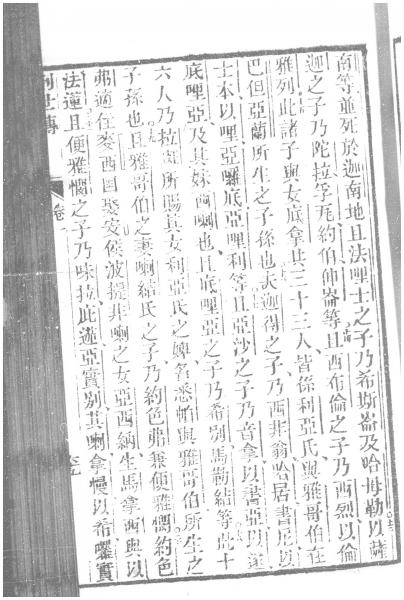 南等並死於迦南地且法哩士之子乃希斯崙及哈母勒以薩
迦之子乃陀拉孚瓦約伯伸崙等且西布倫之子乃西烈以倫
雅列此諸子與女底拿共三十三人皆係利亞氏與雅哥伯在
巴但亞蘭所生之子孫也夫迦得之子乃西非翁哈居書尼以
士本以哩亞囉底亞哩利等且亞沙之子乃音拿以書亞以遂
底哩亞及其妹西喇也且底哩亞之子乃希別馬勒結等此十
六人乃拉班所賜其女利亞氏之婢名悉帕與雅哥伯所生之
子孫也且雅哥伯之妻喇結氏之子乃約色弗兼便雅憫約色
弗適在麥西國娶安侯波提非喇之女亞西納生馬拿西與以
法蓮且便雅憫之子乃味拉比遮亞實別其喇拿慢以希囉實
創世傳 卷一